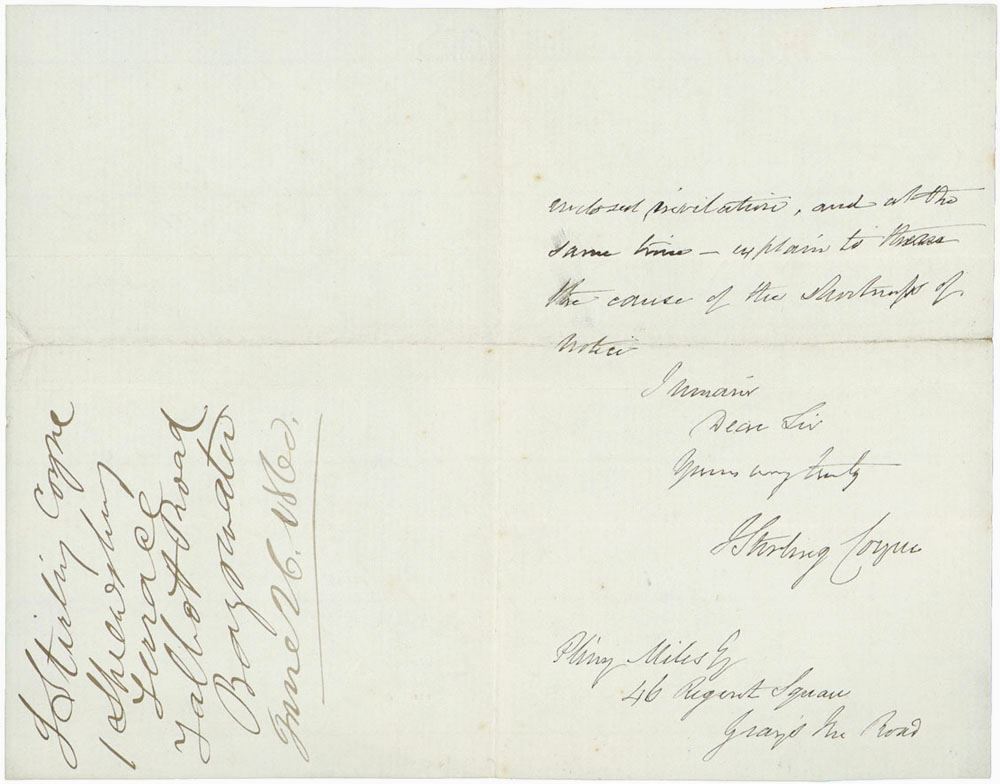 enclosed invitation, and at the
same time – explain to
the cause of the shortness of
notice
I remain
Dear Sir
Yours very truly
J Stirling Coyne
Pliny Miles Esq
46 Regent Square
Gray's Inn Road
J Stirling Coyne
1 Shrewsbury
Terrace
Talbot Road
Bayswater
June 26. 1860.